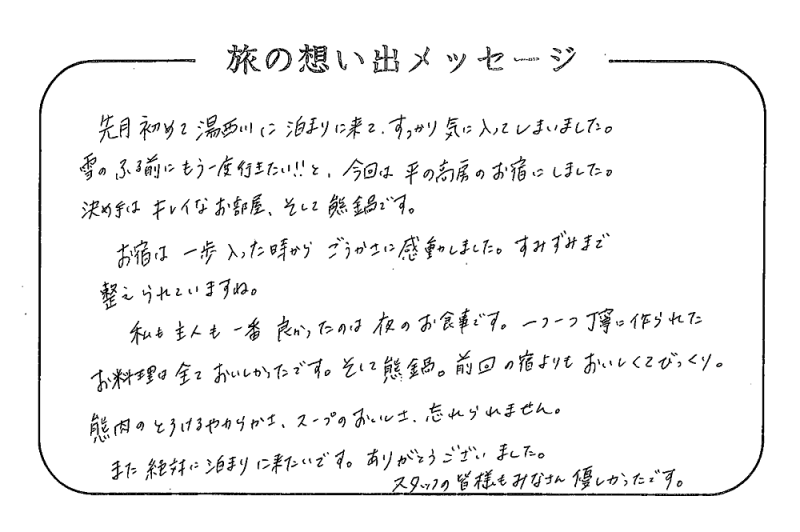 旅の想い出メッセージ
先月初めて湯西川に泊まりに来て、すっかり気に入ってしまいました。
雪のふる前にもう一度行きたい!!と、今回は平の高房のお宿にしました。
決め手はキレイなお部屋、そして熊鍋です。
お宿は一歩入った時からごうかさに感動しました。すみずみまで
整えられていますね。
私も主人も一番良かったのは夜のお食事です。一つ一つ丁寧に作られた
お料理は全ておいしかったです。そして熊鍋。前回の宿よりもおいしくてびっくり。
熊肉のとろけるやわらかさ、スープのおいしさ、忘れられません。
また絶対に泊まりに来たいです。ありがとうございました。
スタッフの皆様もみなさん優しかったです。